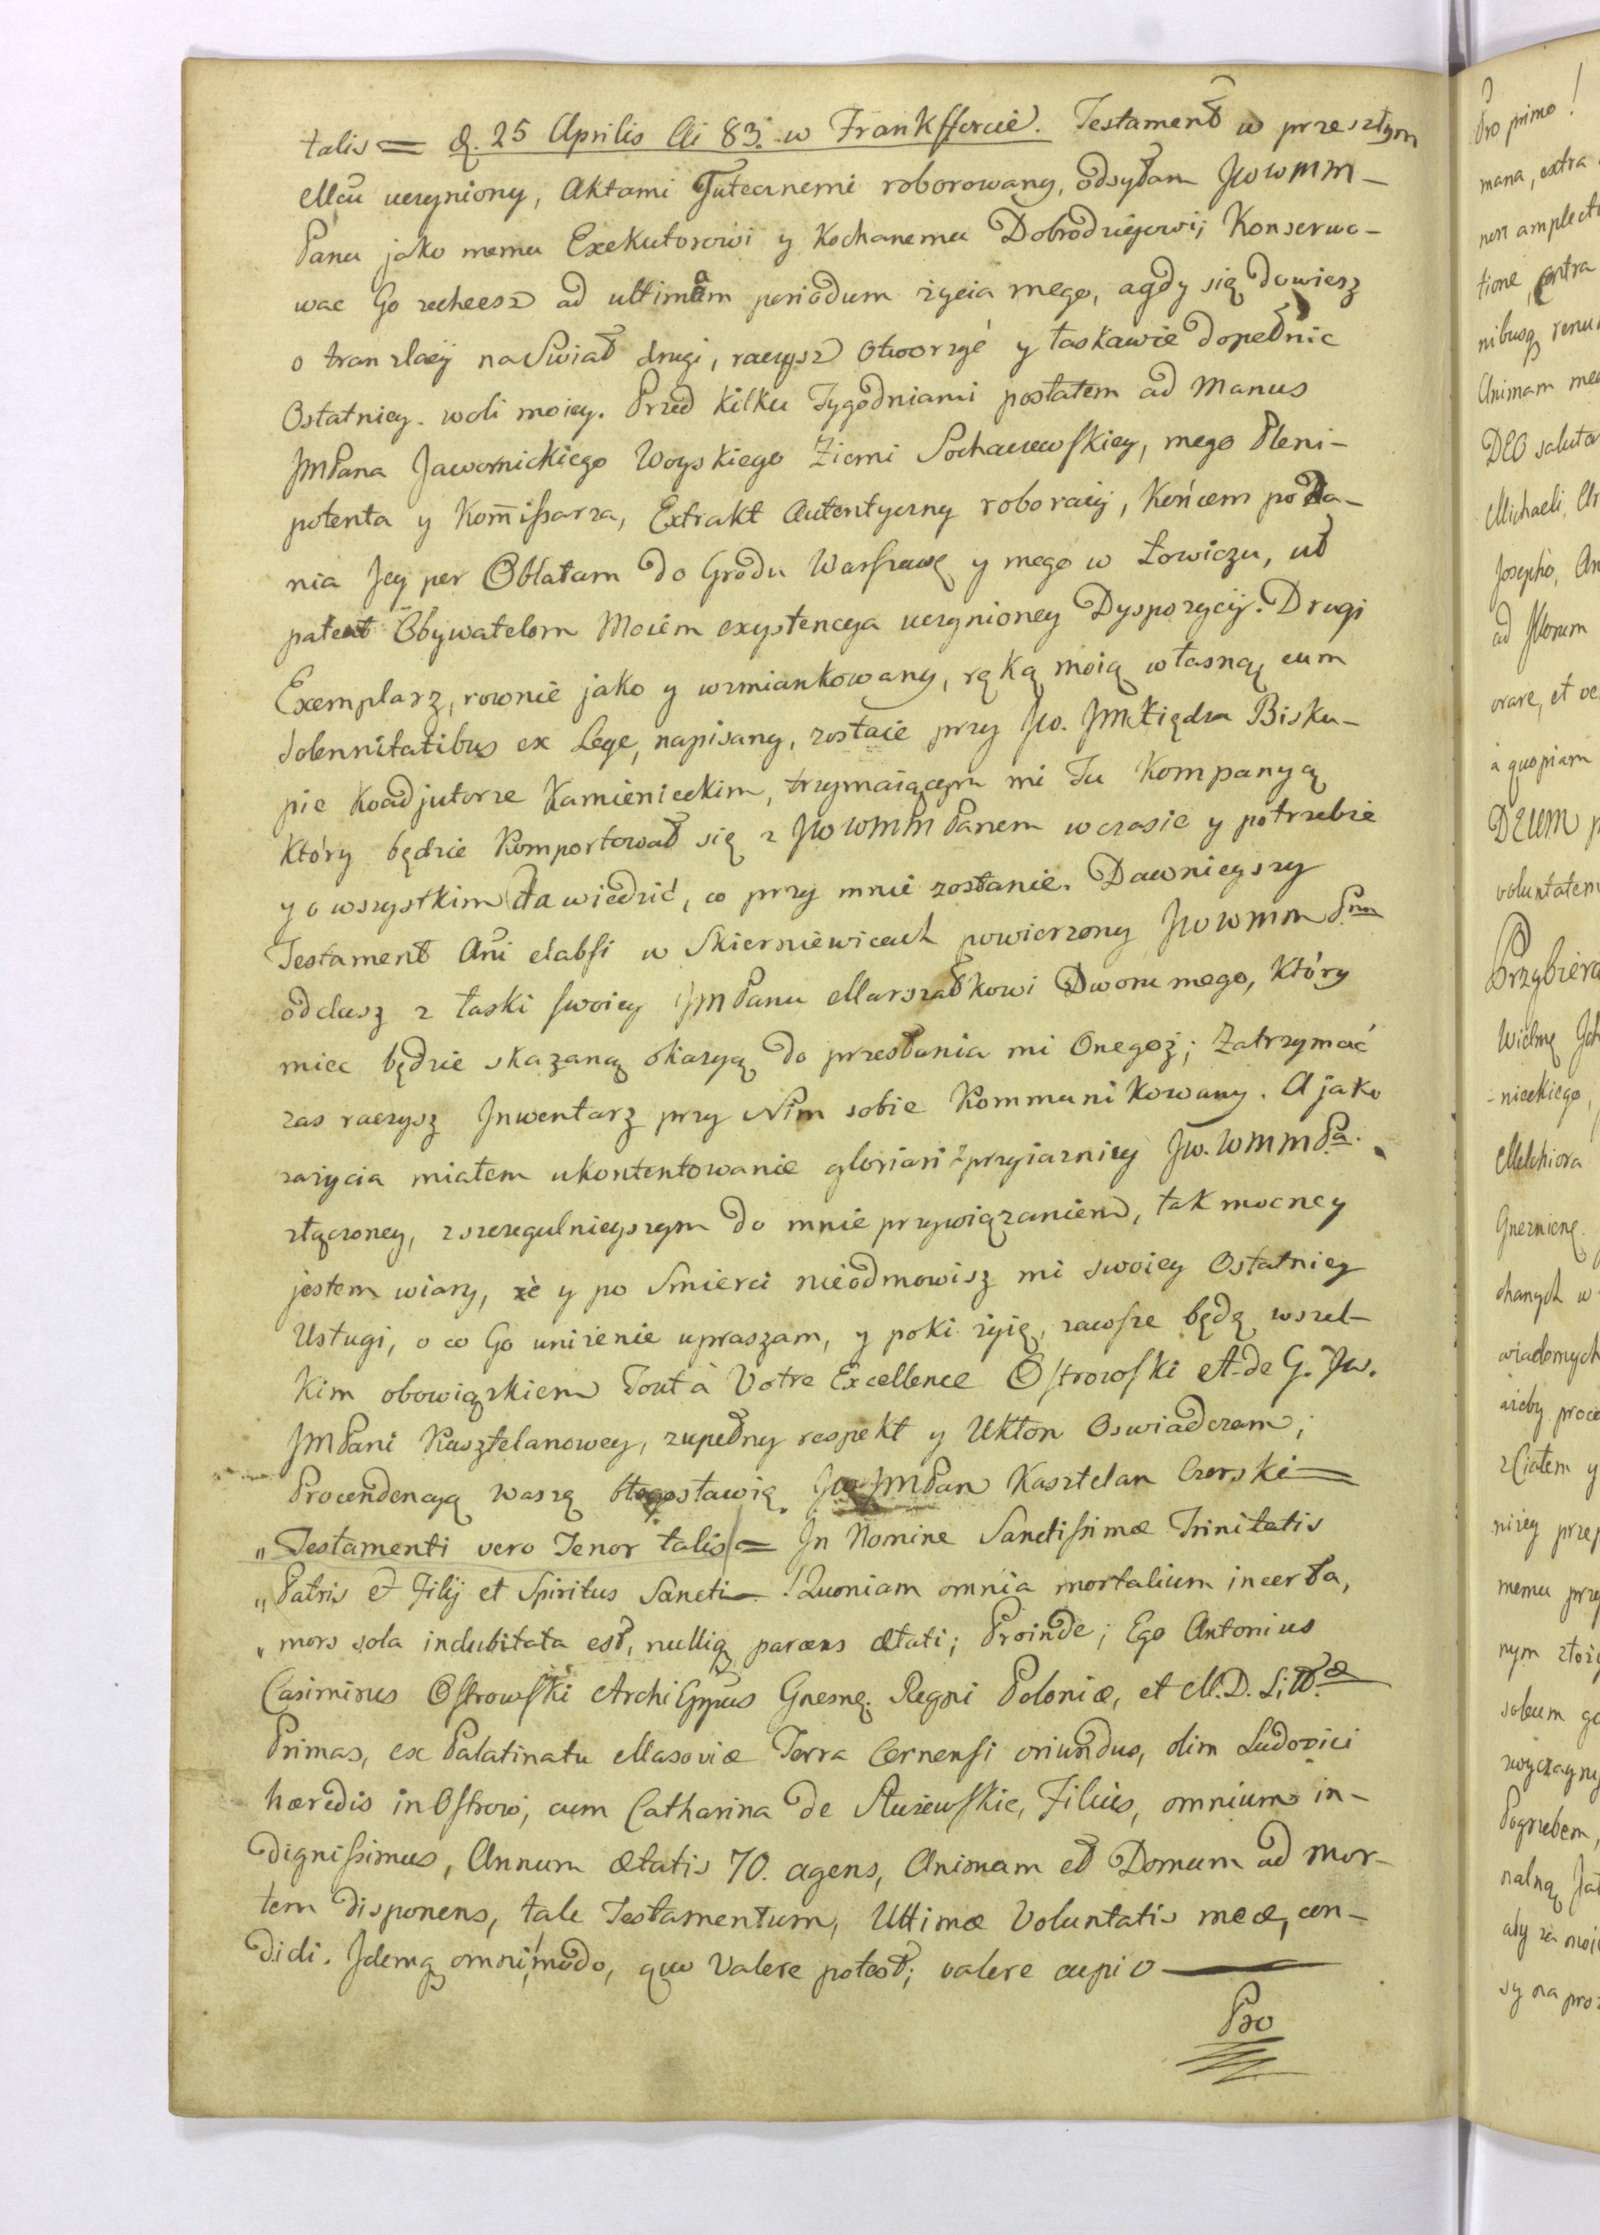 talis = d. 25 Aprilis Ai 83. w Frankfforcie. Testament w przeszłym
Mcu uczyniony, Aktami Tutecznemi roborowany, odsyłam JWWMM-
Panu jako memu Exekutorowi y Kochanemu Dobrodziejowi; Konserwo-
wac Go zechcesz ad ultimam periodum życia mego, a gdy się dowiesz
o tranzlacij na Swiat drugi, raczysz Otworzyć y łaskawie dopełnic
Ostatniey woli moiey. Przed kilku Tygodniami posłałem ad Manus
JMPana Jawornickiego Woyskiego Ziemi Sochaczewskiey, mego Pleni-
potenta y Kommissarza, Extrakt Autentyczny roboracij, Końcem poda-
nia Jey per Oblatam do Grodu Warszawę y mego w Łowiczu, ut
pateat Obywatelom Moiem exystencya uczynioney Dyspozycij. Drugi
Exemplarz, rownie jako y wzmiankowany, ręką moią własną cum
Solennitatibus ex Lege, napisany, zostaie przy JW. JMXiędzu Bisku-
pie Koadjutorze Kamienieckim, trzymaiącym mi Tu Kompanyą
Który będzie Komportował się z JWWMM Panem w czasie y potrzebie
y o wszystkim da wiedzić, co przy mnie zostanie. Dawnieyszy
Testament Ani elabsi w Skierniewicach powierzony JWWMM Pnu
oddasz z łaski swoiey JMPanu Marszałkowi Dworu mego, Który
miec będzie skazaną okazyą do przesłania mi Onegoż; Zatrzymać
zas raczysz Jnwentarz przy Nim sobie Kommunikowany. A jako
za życia miałem ukontentowanie gloriari z przyiazniey JW. WMMPa.
złączoney, z szczegulnieyszym do mnie przywiązaniem, tak mocney
jestem wiary, że y po Smierci nieodmowisz mi swoiey Ostatniey
Usługi, o co Go uniżenie upraszam, y poki żyię, zawsze będę wszel-
kim obowiązkiem Tout à Votre Excellence Ostrowski A. de G. JW.
JMPani Kasztelanowey, zupełny respekt y Ukłon Oswiadczam;
Procendencyą waszą błogosławię. JW JMPan Kasztelan Czerski =
„Testamenti vero Tenor talis = Jn Nomine Sanctissimæ Trinitatis
„Patris et Filij et Spiritus Sancti - Quoniam omnia mortalium incerta,
„mors sola indubitata est, nulliq parcens ætati; Proinde; Ego Antonius
Casimirus Ostrowski ArchiEppus Gnesnę. Regni Poloniæ, et M. D. Litt.æ
Primas, ex Palatinatu Masoviæ Terra Cernensi oriundus, olim Ludovici
hæredis in Ostrow, cum Catharina de Służewskie, Filius, omnium in-
dignissimus, Annum ætatis 70. agens, Animam et Domum ad mor-
tem disponens, tale Testamentum, Ultimæ Voluntatis meæ, con-
didi. Jdemq omni modo, quo Valere potest; valere cupio
Pro
Pro primo!
mana, extra
non amplecti
tione, contra
nibusq renu
Animam mea
DEO saluta
Michaeli, Ar
Josepho, An
ad Illorum
orare, et
à quopiam
DEUM p
voluntatem
Przybiera
Wielmę
-nieckiego,
Melchiora
Gnezninę.
chanych w
wiadomych
ażeby proce
z Ciałem y
niżey prze
memu przy
nym złoży
sobum
zwyczayny
Pogrzebem,
nalną
aby za moi
sy na pro